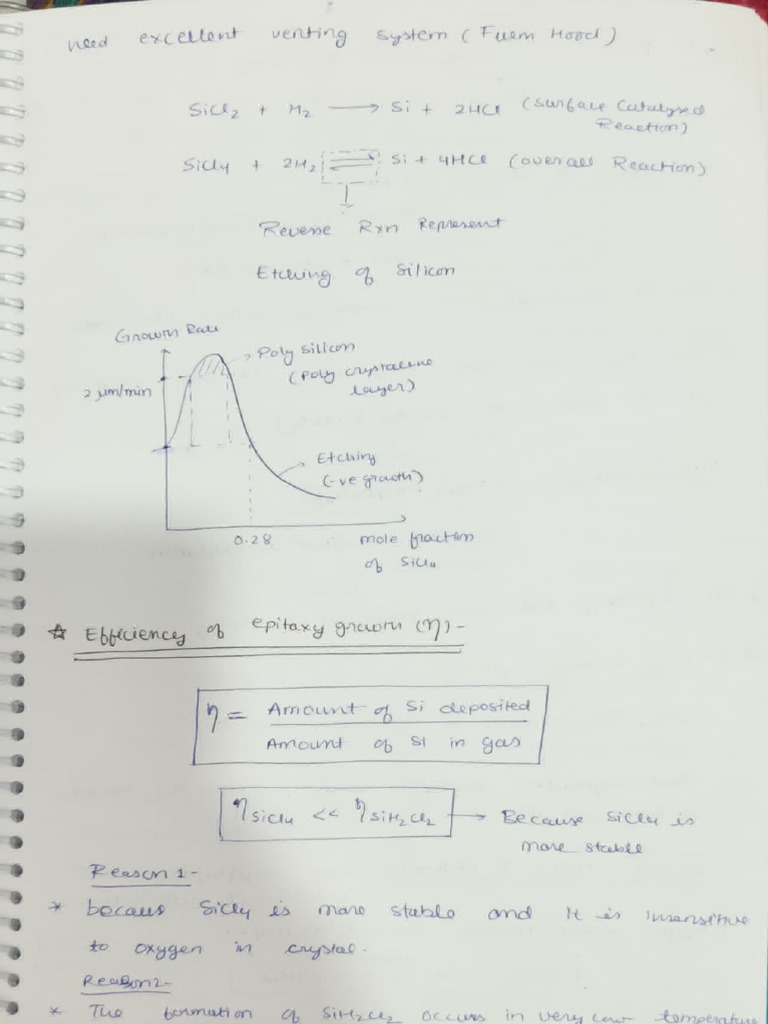 need excellent venting system (Fuem Hood)
SiCl2 + H2 → Si + 2HCl (Surface Catalysed
Reaction)
SiCl4 + 2H2 ⇌ Si + 4HCl (overall Reaction)
Reverse Rxn Represent
Etching of Silicon
Growth Rate
Poly Silicon
(Poly crystalline
layer)
2 μm/min
Etching
(-ve growth)
0.28
mole fraction
of SiCl4
☆ Efficiency of epitaxy growth (η) -
η = Amount of Si deposited
Amount of Si in gas
ηSiCl4 << ηSiH2Cl2 → Because SiCl4 is
more stable
Reason 1-
* becaus SiCl4 is more stable and it is insensitive
to oxygen in crystal.
Reason2-
* The formation of SiH2Cl2 occurs in very low temperature